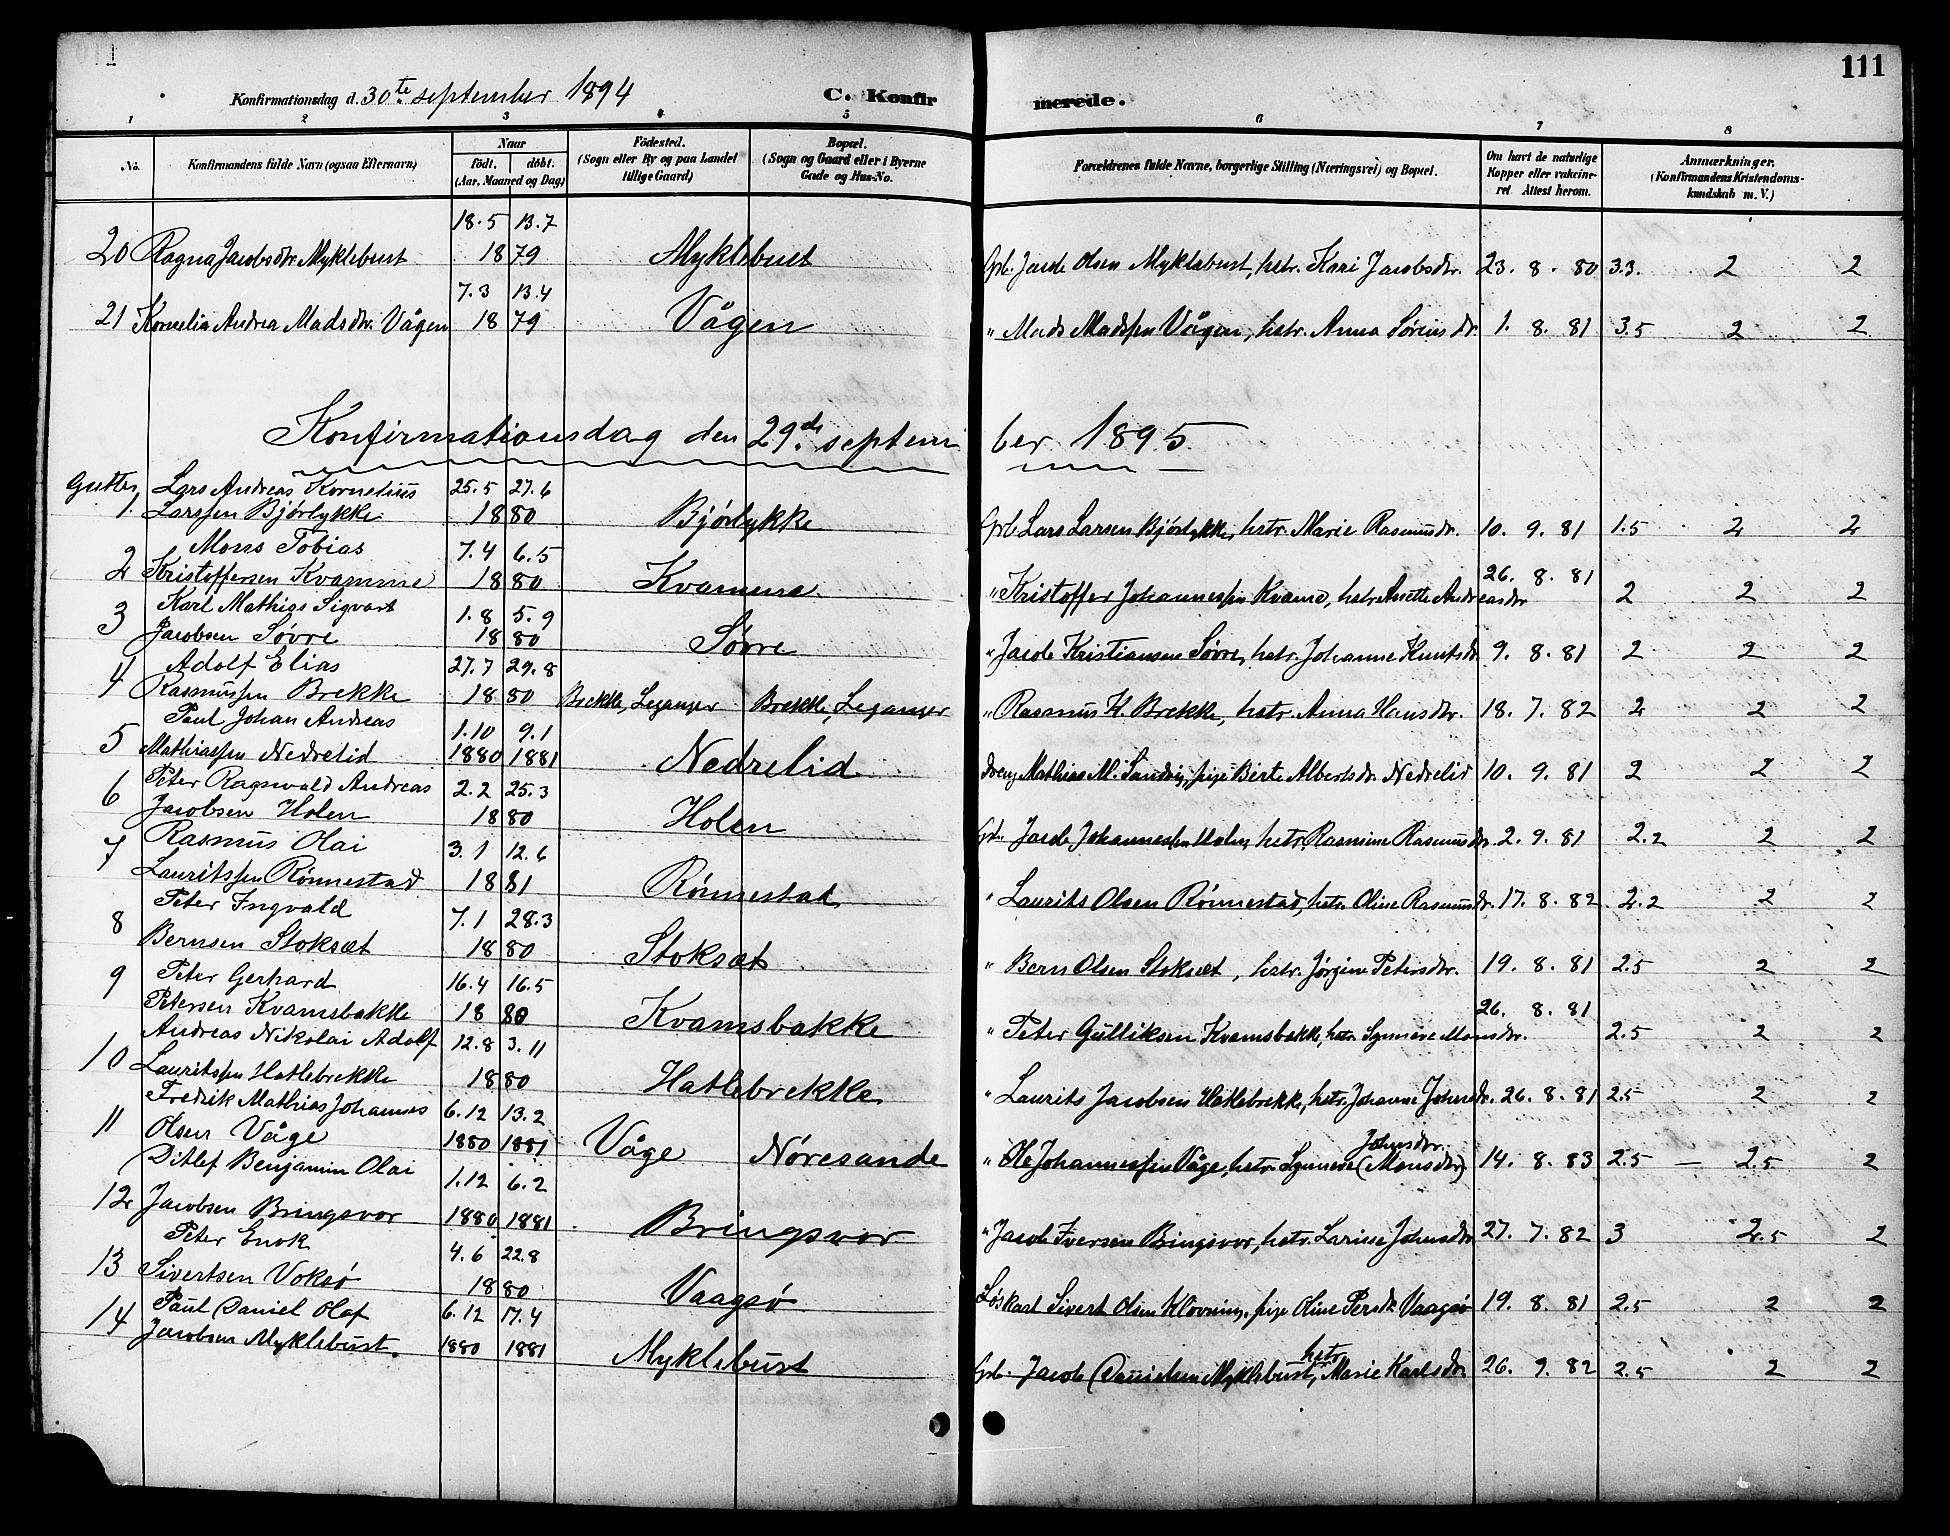 111
Konfirmationsdag d. 30te september 1894 C. Konfirmerede.
1 2 3 4 5 6 7 8
No. Konfirmandens fulde Navn (ogsaa Efternavn) Naar født. døbt. (Aar, Maaned og Dag) Fødested. (Sogn eller By og paa Landet tillige Gaard) Bopæl. (Sogn og Gaard eller i Byerne Gade og Hus-No. Forældrenes fulde Navne, borgerlige Stilling (Næringsvei) og Bopæl. Om havt de naturlige Kopper eller vaccineret Attest herom. Anmærkninger. (Konfirmandens Kristendomskundskab m. V.)
18.5 13.7
20 Ragna Jacobsdr. Myklebust 1879 Myklebust Gpb. Jacob Olsen Myklebust, hstr. Kari Jacobsdr. 23. 8. 80 3.3. 2 2
7.3 13.4
21 Kornelia Andrea Madsdr. Vågen 1879 Vågen " Mads Madssen Vågen, hstr. Anna Sørensdr. 1. 8. 81 3.5 2 2
Konfirmationsdag den 29de september 1895.
Gutter, Lars Andreas Kornelius 25.5 27.6
1. Larssen Bjørlykke 1880 Bjørlykke Gpb. Lars Larsen Bjørlykke, hstr. Marie Rasmusdr. 10. 9. 81 1.5 2 2
Mons Tobias 7.4 6.5
2 Kristoffersen Kvamme 1880 Kvamme " Kristoffer Johannessen Kvame, hstr. Anette Andreasdr. 26. 8. 81 2 2 2
Karl Mathias Sigvart 1.8 5.9
3 Jacobsen Søvre 1880 Søvre " Jacob Kristiansen Søvre, hstr. Johanne Knutsdr. 9. 8. 81 2 2 2
Adolf Elias 27.7 29.8
4 Rasmussen Brekke 1880 Brekke, Leganger Brekke, Leganger " Rasmus K. Brekke, hstr. Anna Hansdr. 18. 7. 82 2 2 2
Paul Johan Andreas 1.10 9.1
5 Mathiassen Nedrelid 1880 1881 Nedrelid dreng Mathias M. Sandvig, pige Berte Albertsdr. Nedrelid 10. 9. 81 2 2 2
Peter Ragnvald Andreas 2.2 25.3
6 Jacobsen Holen 1880 Holen Gpb. Jacob Johannessen Holen, hstr. Rasmine Rasmusdr. 2. 9. 81 2.2 2 2
Rasmus Olai 3.1 12.6
7 Lauritssen Rønnestad 1881 Rønnestad " Laurits Olsen Rønnestad, hstr. Oline Rasmusdr. 17. 8. 82 2.2 2 2
Peter Ingvald 7.1 28.3
8 Bernsen Stoksæt 1880 Stoksæt " Bern Olsen Stoksæt, hstr. Jørgine Petersdr. 19. 8. 81 2.5 2 2
9 Peter Gerhard 16.4 16.5
Petersen Kvamsbakke 1880 Kvamsbakke " Peter Gulliksen Kvamsbakke, hstr. Synneve Monsdr. 26. 8. 81 2.5 2 2
Andreas Nikolai Adolf 12.8 3.11
10 Lauritssen Hatlebrekke 1880 Hatlebrekke " Laurits Jacobsen Hatlebrekke, hstr. Johanne Johnsdr. 26. 8. 81 2.5 2 2
Fredrik Mathias Johannes 6.12 13.2
11 Olsen Våge 1880 1881 Våge Nøresande " Ole Johannessen Våge, hstr. Synneve Johnsdr. (Monsdr.) 14. 8. 83 2.5 — 2.5 2
Ditlef Benjamin Olai 1.12 6.2
12 Jacobsen Bringsvor 1880 1881 Bringsvor " Jacob Iversen Bringsvor, hstr. Larine Johnsdr. 27. 7. 82 3 2.5 2
Peter Enok 4.6 22.8
13 Sivertsen Voksø 1880 Vaagsø Løskarl Sivert Olsen Kløvning, pige Oline Persdr. Vaagsø 19. 8. 81 2.5 2 2
Paul Daniel Olaf 6.12 17.4
14 Jacobsen Myklebust. 1880 1881 Myklebust Gpb. Jacob Danielsen Myklebust, hstr. Marie Karlsdr. 26. 9. 82 2.5 2 2